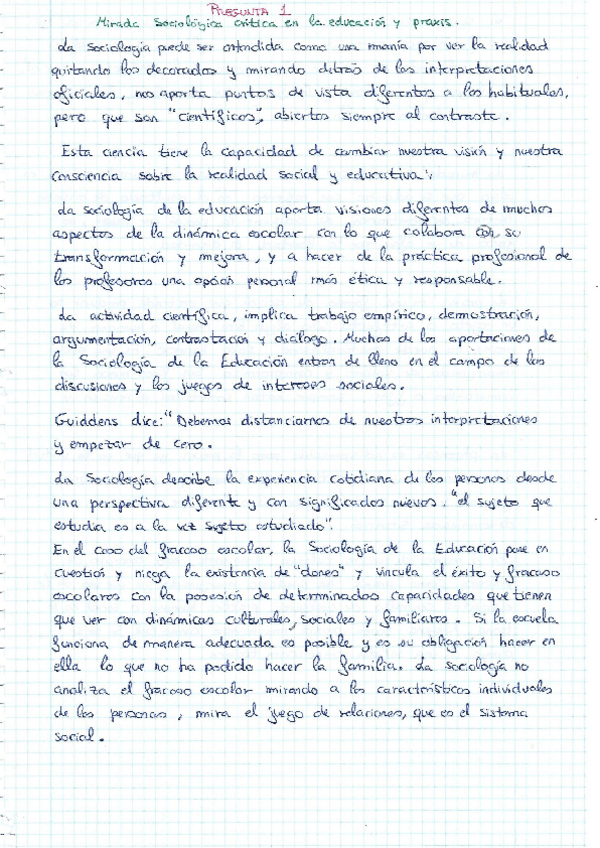 PREGUNTA 1
Mirada Sociológica crítica en la educación y praxis.
La Sociología puede ser entendida como una manía por ver la realidad
quitando los decorados y mirando detrás de las interpretaciones
oficiales, nos aporta puntos de vista diferentes a los habituales,
pero que son "científicos", abiertos siempre al contraste.
Esta ciencia tiene la capacidad de cambiar nuestra visión y nuestra
consciencia sobre la realidad social y educativa.
La sociología de la educación aporta visiones diferentes de muchos
aspectos de la dinámica escolar con lo que colabora con su
transformación y mejora, y a hacer de la práctica profesional de
los profesores una opción personal más ética y responsable.
La actividad científica, implica trabajo empírico, demostración,
argumentación, contrastación y diálogo. Muchas de las aportaciones de
la Sociología de la Educación entran de lleno en el campo de las
discusiones y los juegos de intereses sociales.
Guiddens dice: "Debemos distanciarnos de nuestras interpretaciones
y empezar de cero.
La Sociología describe la experiencia cotidiana de las personas desde
una perspectiva diferente y con significados nuevos. "el sujeto que
estudia es a la vez sujeto estudiado".
En el caso del fracaso escolar, la Sociología de la Educación pone en
cuestión y niega la existencia de "dones" y vincula el éxito y fracaso
escolares con la posesión de determinadas capacidades que tienen
que ver con dinámicas culturales, sociales y familiares. Si la escuela
funciona de manera adecuada es posible y es su obligación hacer en
ella lo que no ha podido hacer la familia. La sociología no
analiza el fracaso escolar mirando a las características individuales
de las personas, mira el juego de relaciones, que es el sistema
social.